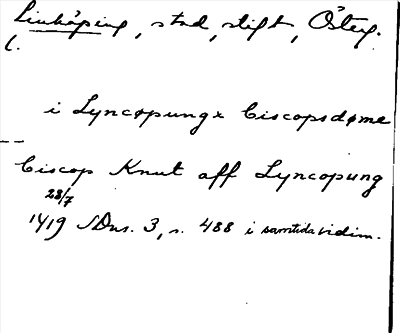 Linköping, stad, stift, Österg.
l.
i Lyncopungx biscopsdøme
--
biscop Knut aff Lyncopung
28/7
1419 SDns. 3, s. 488 i samtida vidim.